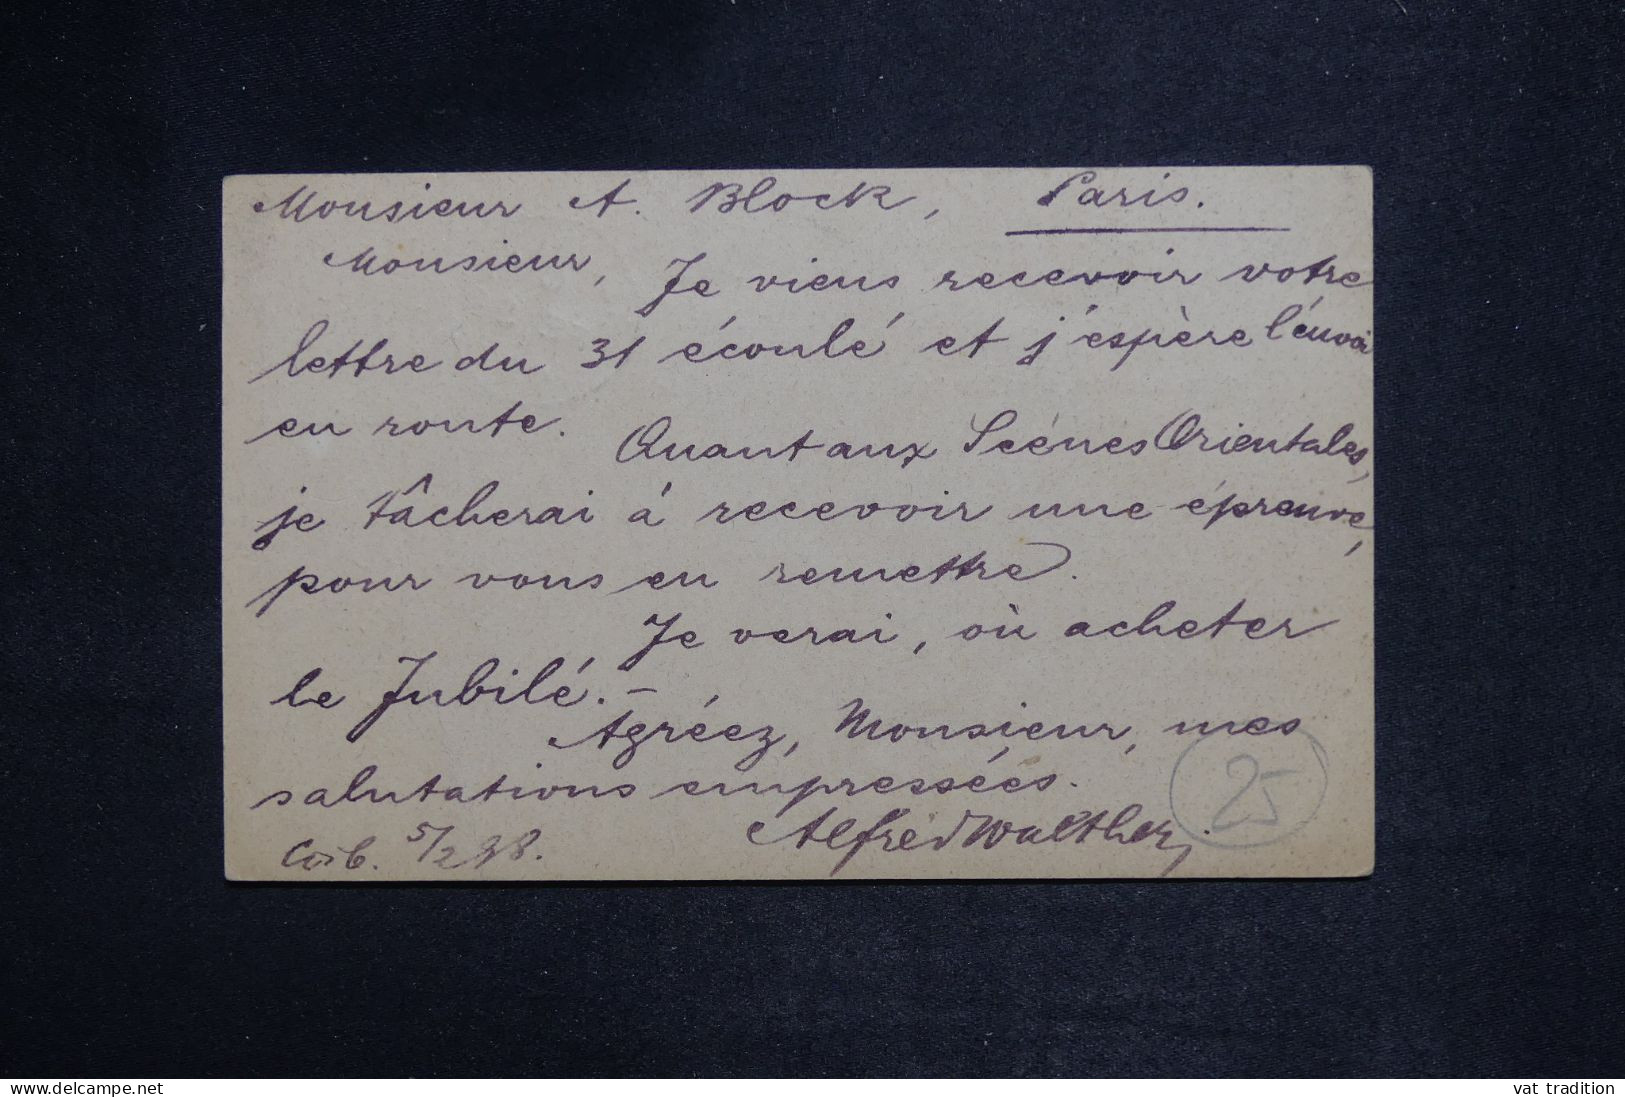 Monsieur A. Block, Paris.
Monsieur, Je viens recevoir votre
lettre du 31 écoulé et j'espère l'envoi
en route. Quant aux Scènes Orientales,
je tâcherai à recevoir une épreuve,
pour vous en remettre.
Je verai, où acheter
le Jubilé. –
Agréez, Monsieur, mes
salutations empressées.
25
5/2 98. Alfred Walther
www.delcampe.net
vat tradition